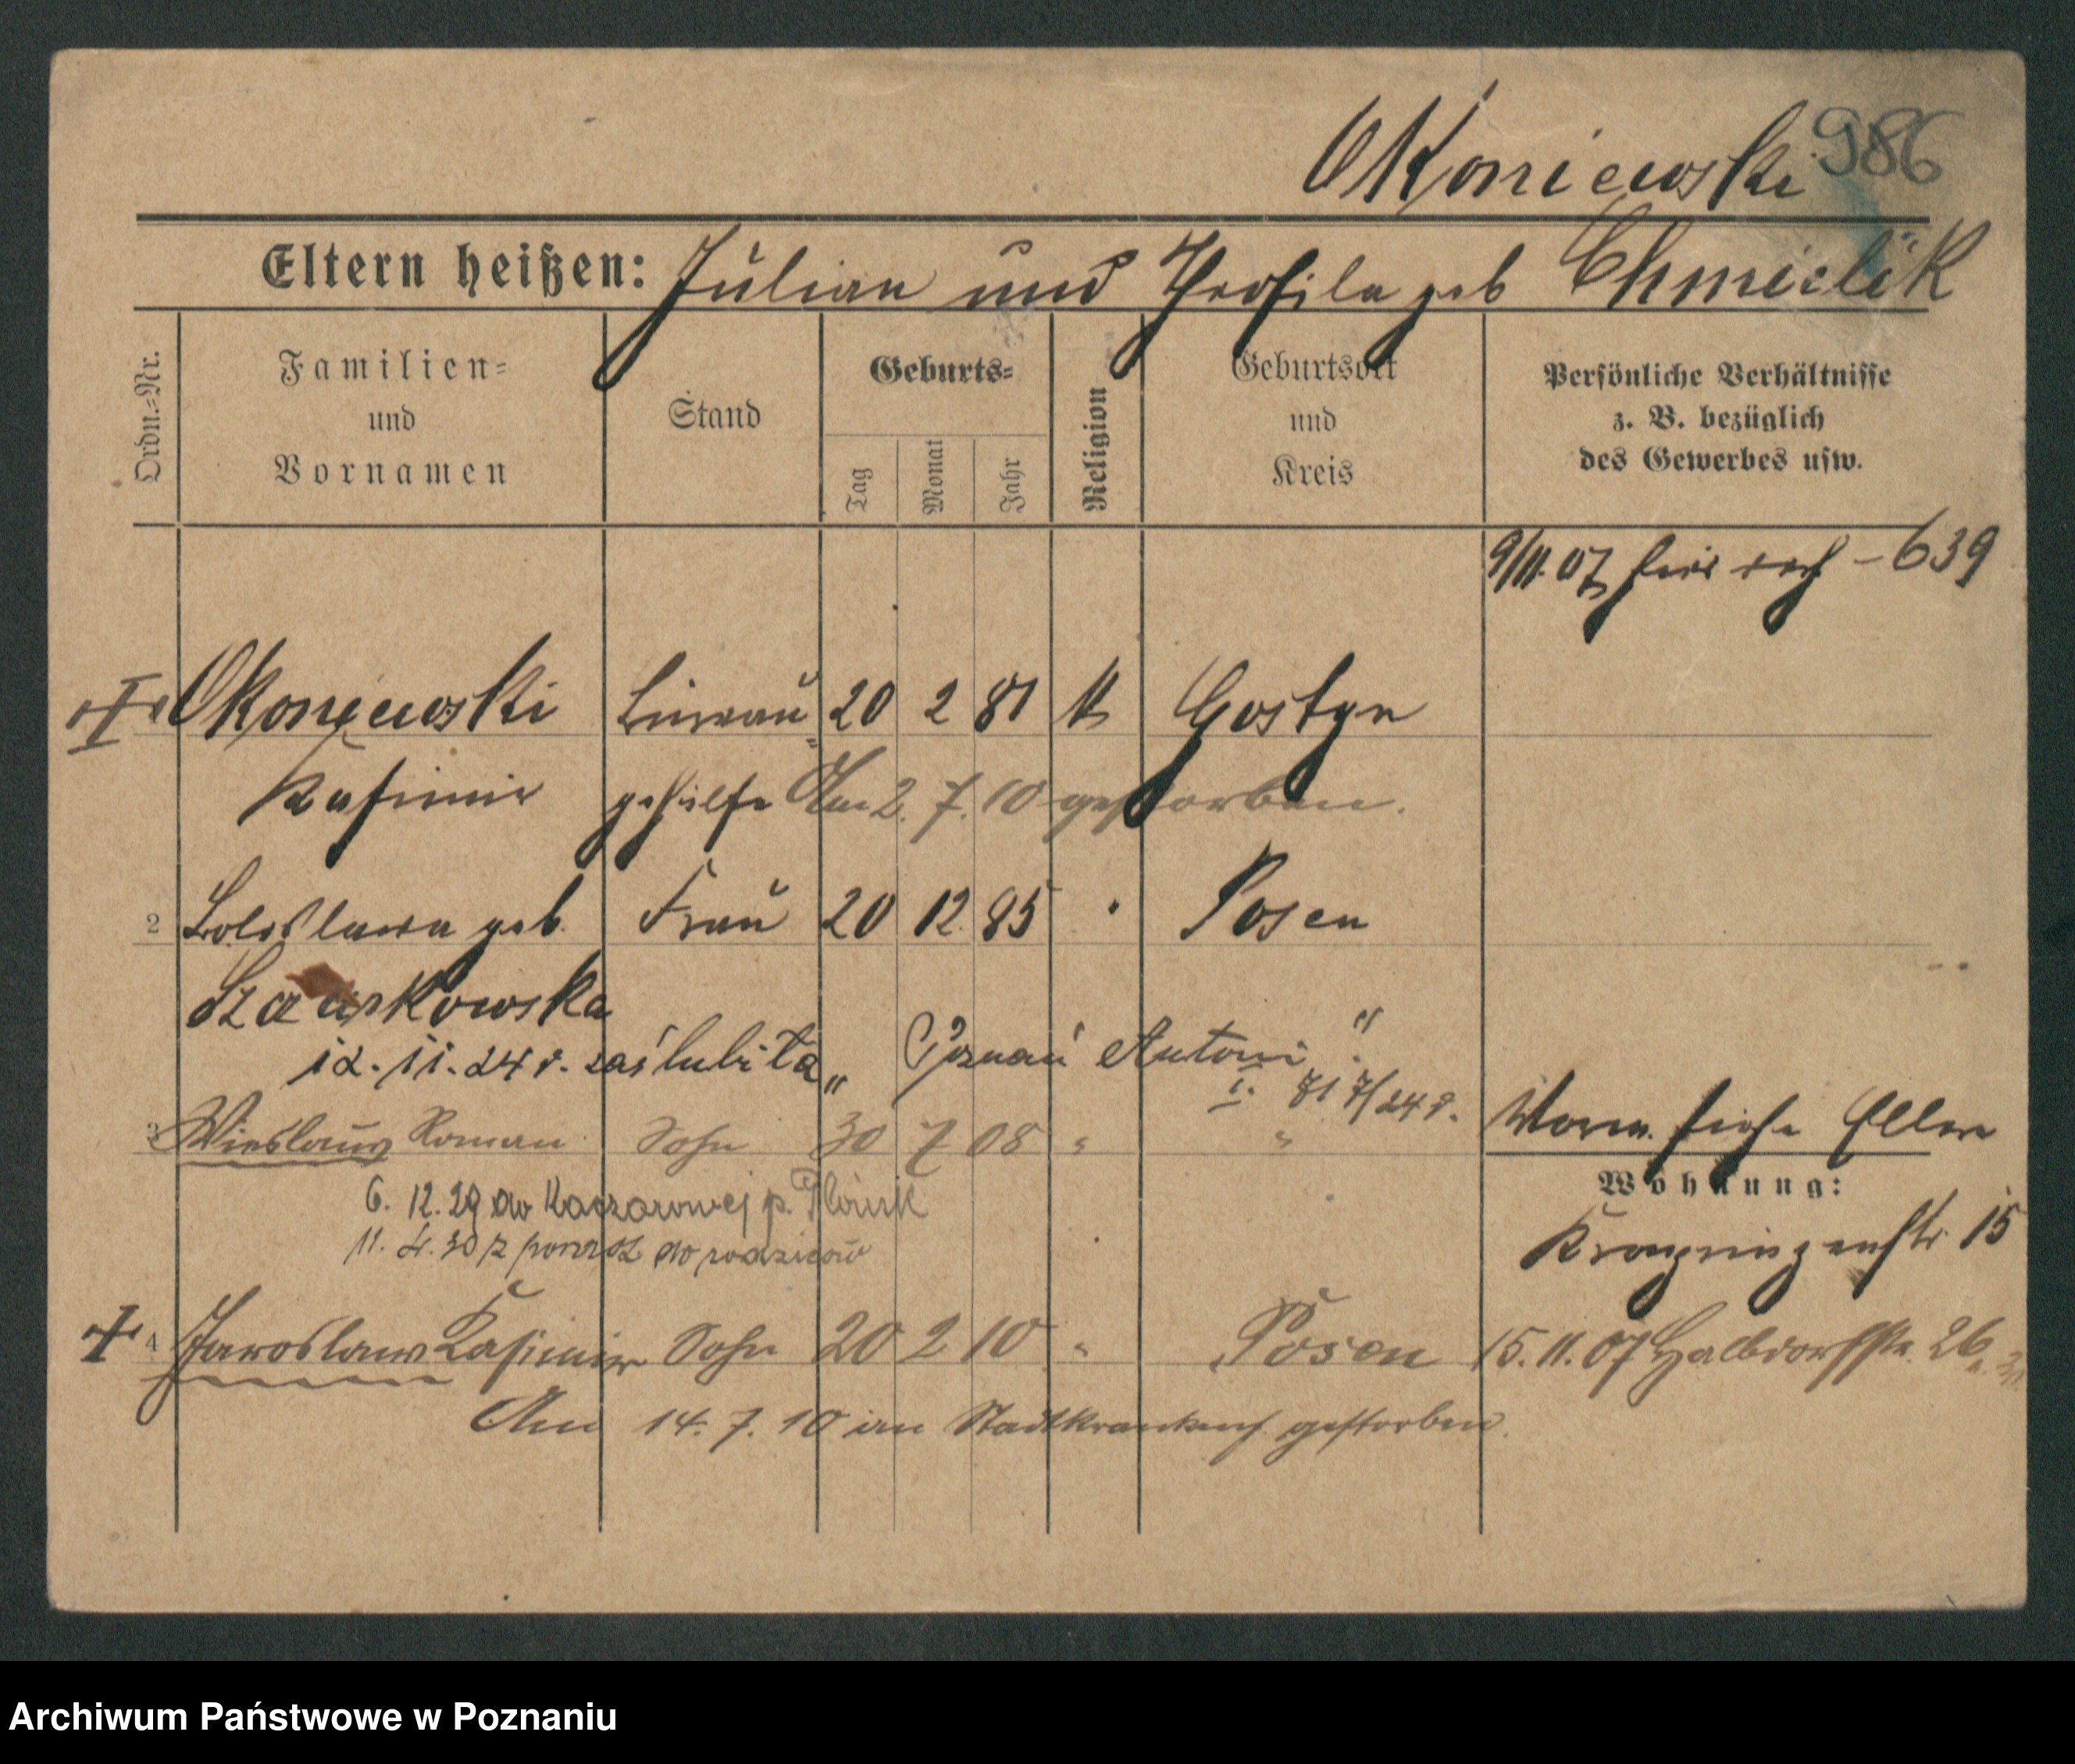 Okoniewski 986
Eltern heißen: Julian und Theofila geb Chmielik
Ordn.-Nr.
Familien-
und
Vornamen
Stand
Geburts-
Tag
Monat
Jahr
Religion
Geburtsort
und
Kreis
Persönliche Verhältnisse
z. B. bezüglich
des Gewerbes usw.
9/11.07 – 639
Okoniewski 20 2 81 k Gostyn
Kasimir gehülfe Am 2. 7. 10 gestorben.
2 Boleslawa geb. Frau 20 12. 85 " Posen
12.11.24 r. zaślubiła „Poznań Antoni"
3 Wieslaus Roman Sohn 30 7 08 " "
Worm. siehe Eltern
Wohnung:
6. 12. 29 do p. Płońsk
Kronprinzenstr. 15
11. 30 z powrot do rodziców
4 Jaroslaus Kasimir Sohn 20 2 10 " Posen 15.11.07 Halbdorfstr. 26
Am 14. 7. 10 im Stadtkrankenh. gestorben.
Archiwum Państwowe w Poznaniu